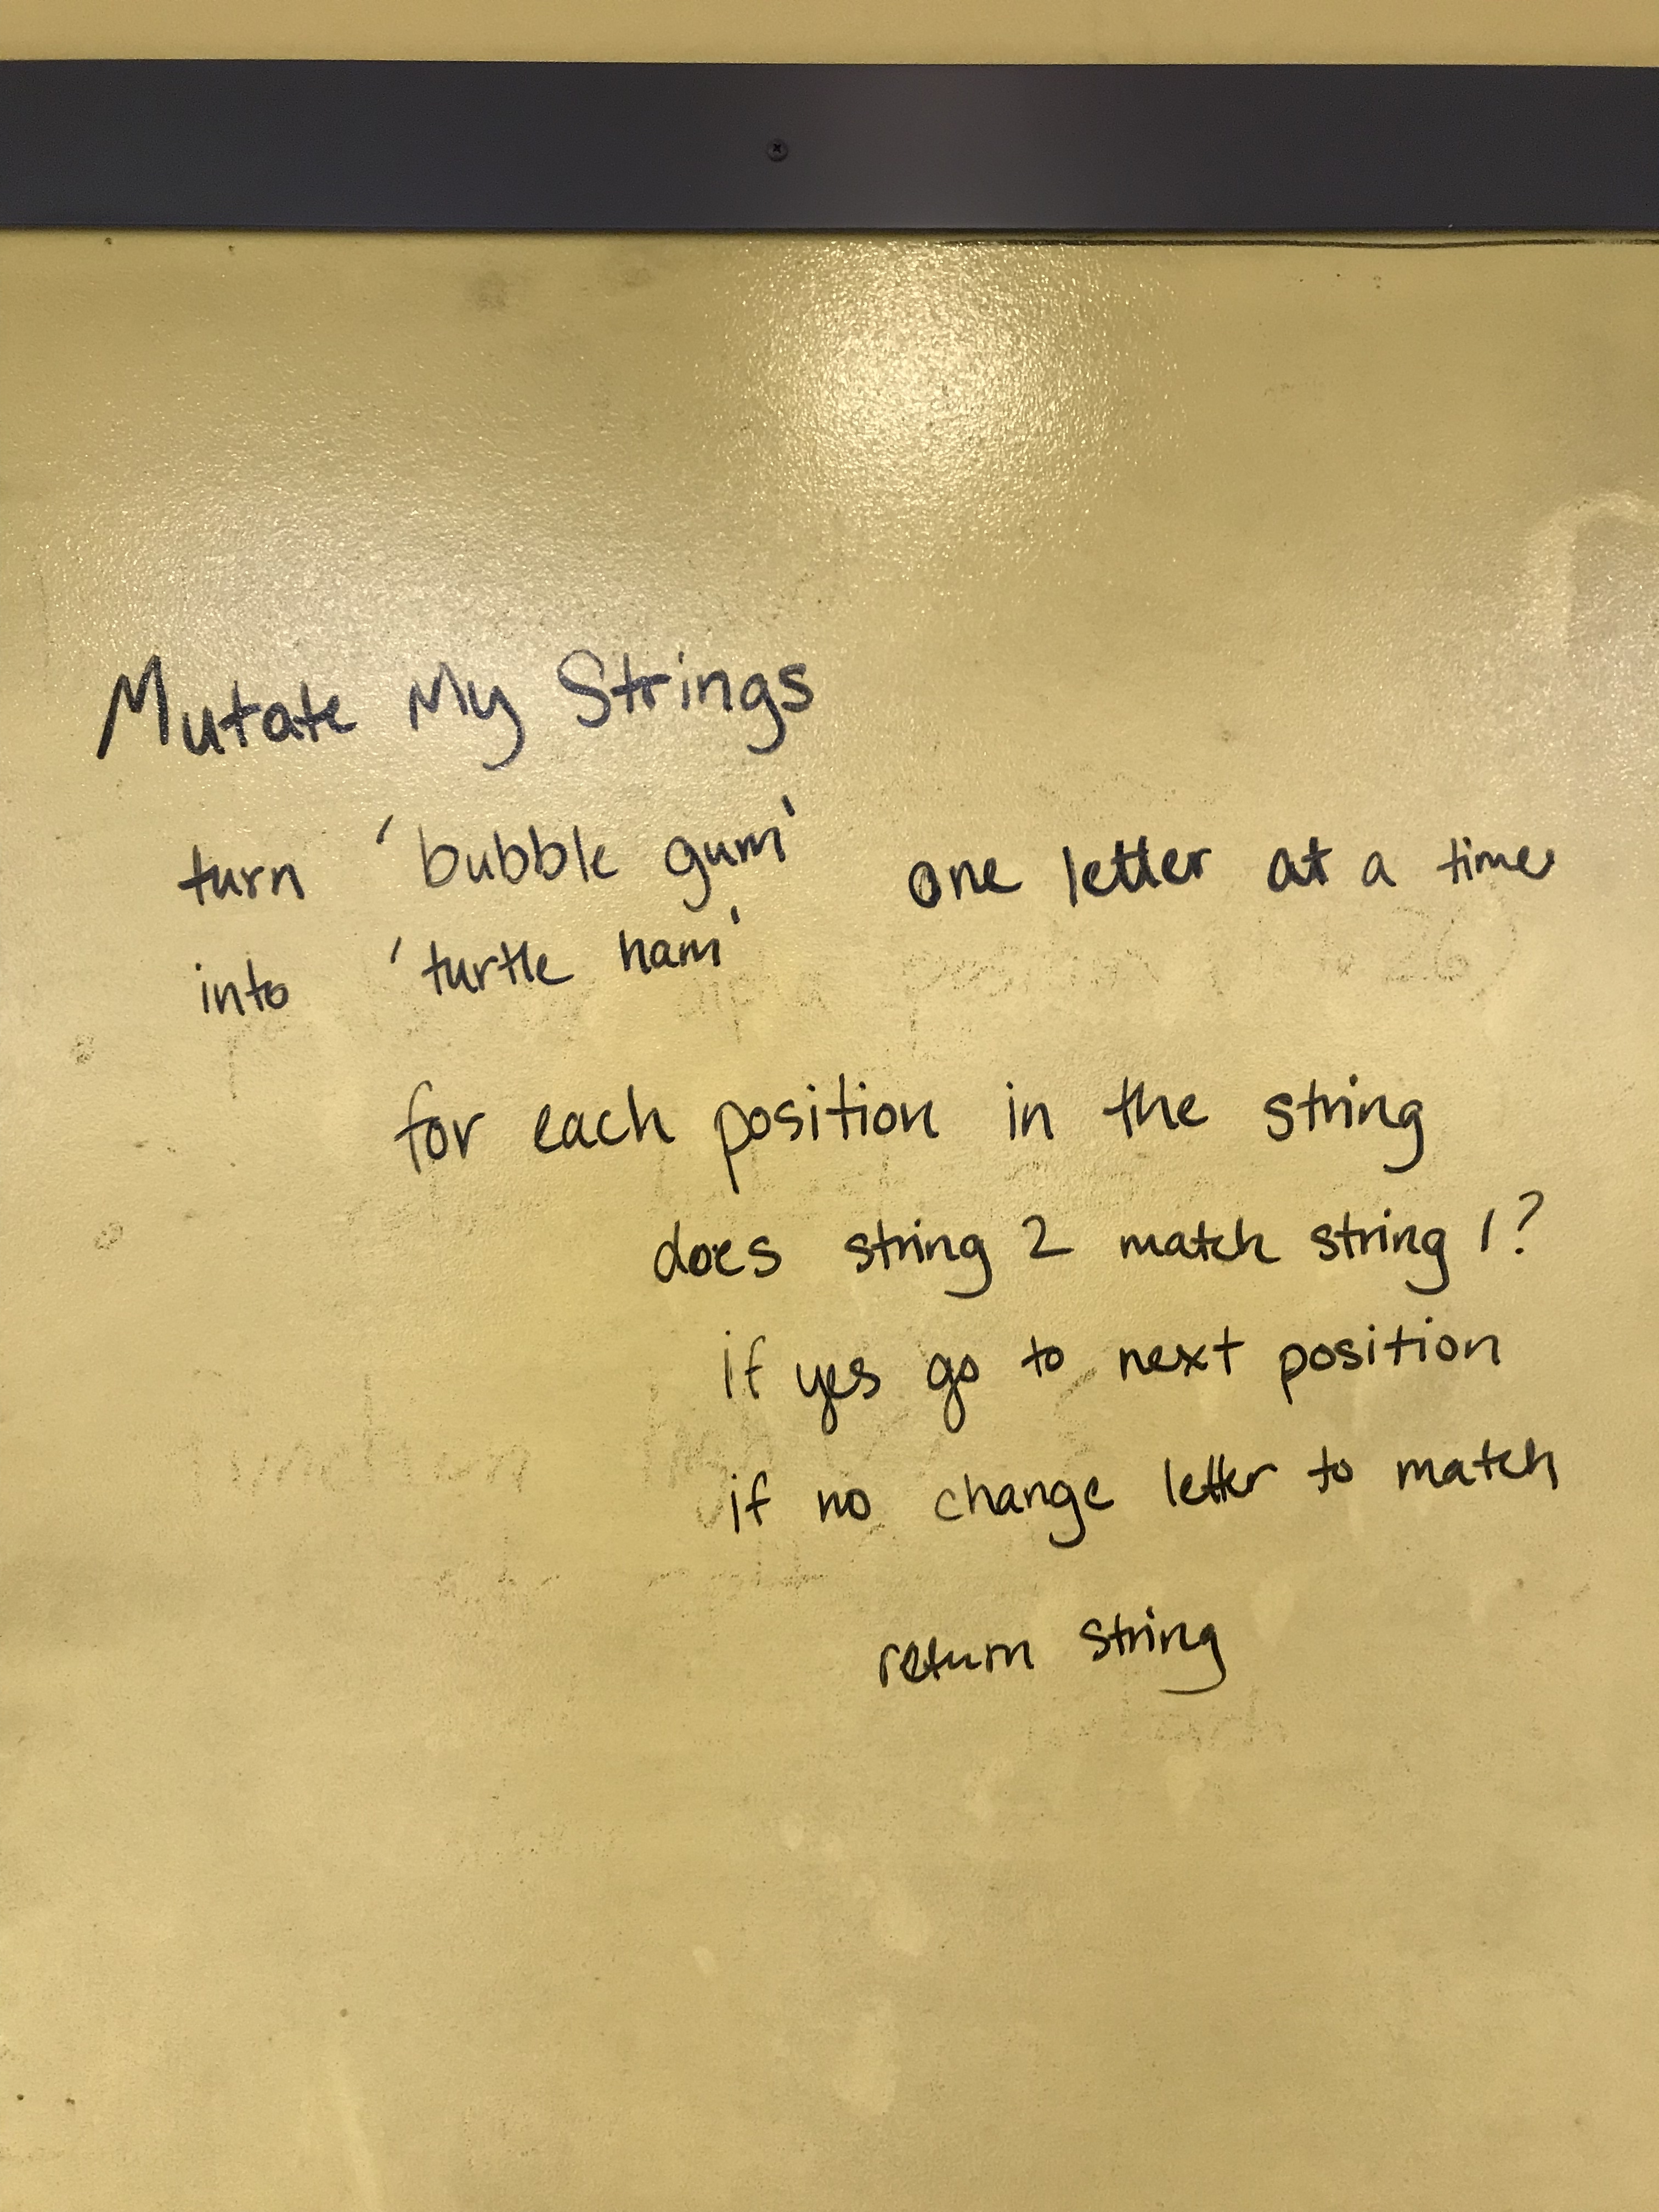 Mutate My Strings
turn 'bubble gum' one letter at a time
into 'turtle ham'
for each position in the string
does string 2 match string 1?
if yes go to next position
if no change letter to match
return string